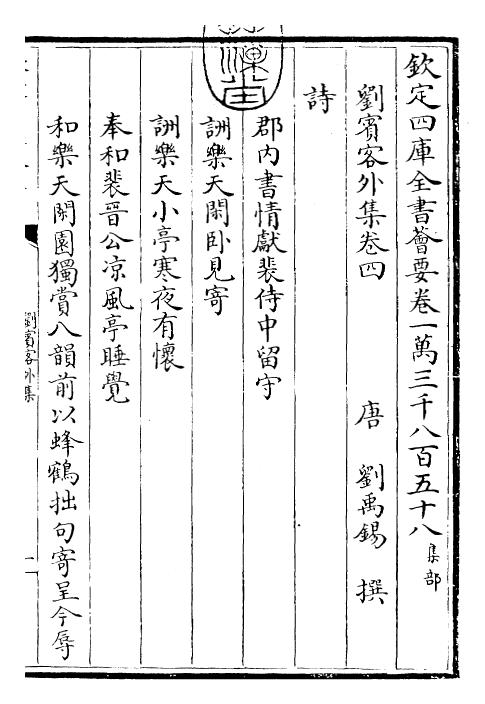 欽定四庫全書薈要卷一萬三千八百五十八 集部
劉賓客外集卷四 唐 劉禹錫 撰
詩
郡内書情獻裴侍中留守
詶樂天閑卧見寄
詶樂天小亭寒夜有懷
奉和裴晉公凉風亭睡覺
和樂天閑園獨賞八韻前以蜂鶴拙句寄呈今辱
劉賓客外集